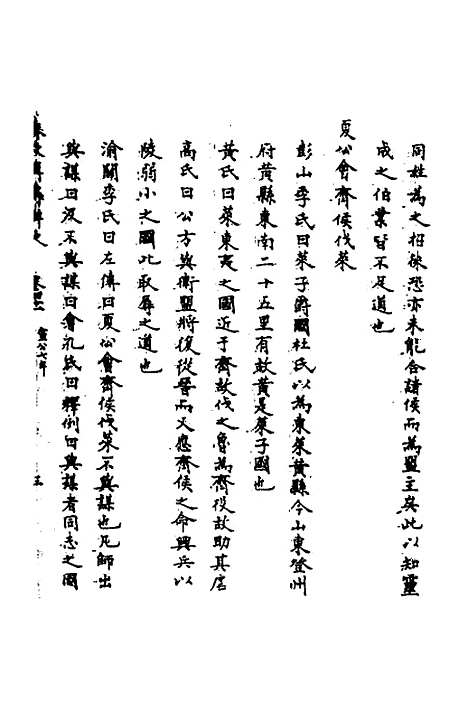 同姓為之招徠恐亦未能合諸侯而為盟主矣此以知靈
成之伯業皆不足道也
夏公會齊侯伐萊
彭山季氏曰萊子爵國杜氏以為東萊黃縣今山東登州
府黃縣東南二十五里有故黃是萊子國也
黃氏曰萊東夷之國近于齊故伐之魯為齊役故助其虐
高氏曰公方與衛盟將復從晉而又應齊侯之命興兵以
陵弱小之國此取辱之道也
渝關李氏曰左傳曰夏公會齊侯伐萊不與謀也凡師出
與謀曰及不與謀曰會孔氏曰釋例曰與謀者同志之國
宣公七年